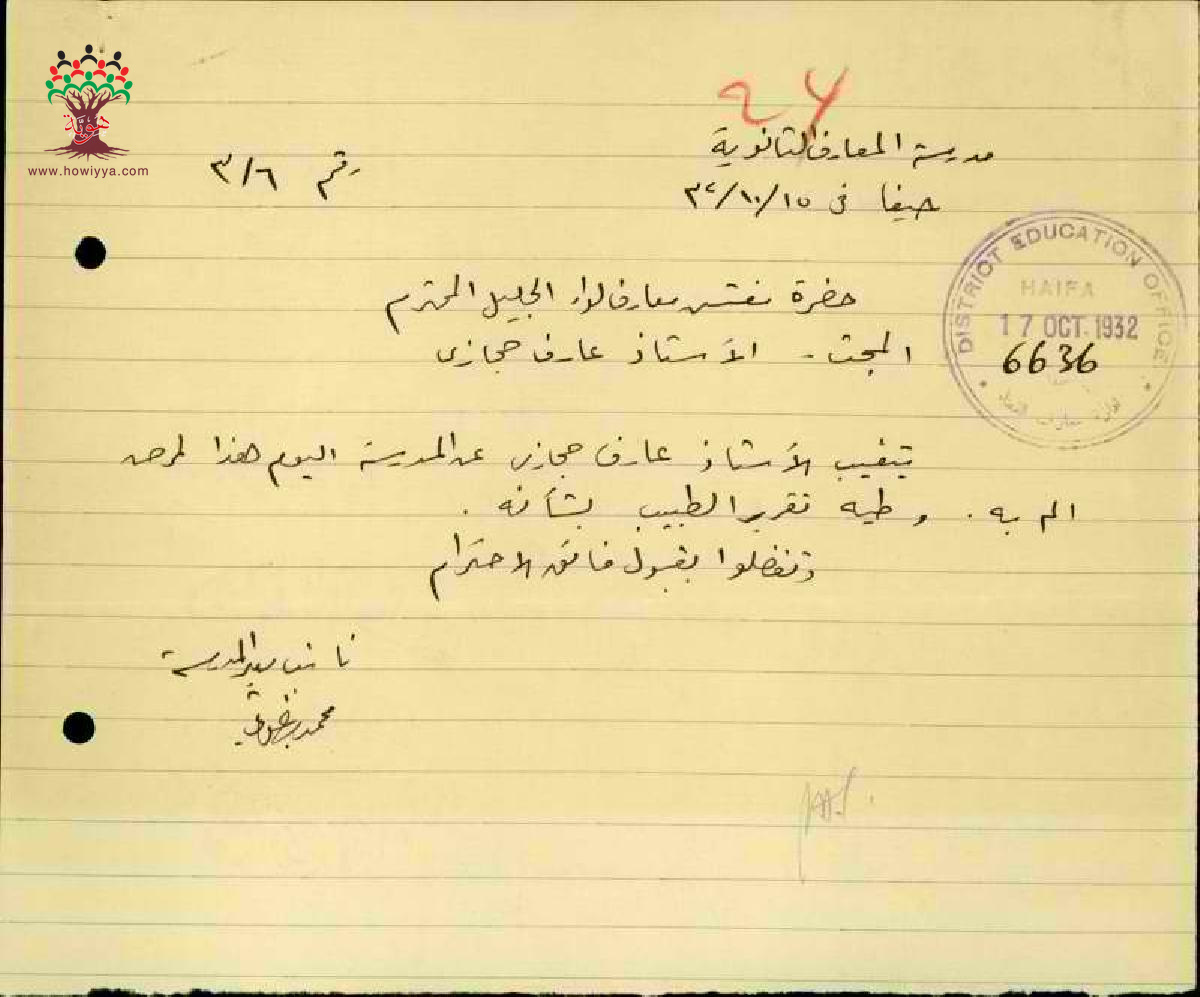 هوية
www.howiyya.com
مدرسة المعارف الثانوية
رقم ٣/٦
حيفا في ١٥/١٠/٣٢
DISTRICT EDUCATION OFFICE
HAIFA
17 OCT. 1932
6636
حضرة مفتش معارف لواء الجليل المحترم
المبحث - الأستاذ عارف حجازي
يتغيب الأستاذ عارف حجازي عن المدرسة اليوم هذا لمرض
الم به. وطيه تقرير الطبيب بشأنه.
وتفضلوا بقبول فائق الاحترام
نائب مدير المدرسة
محمد